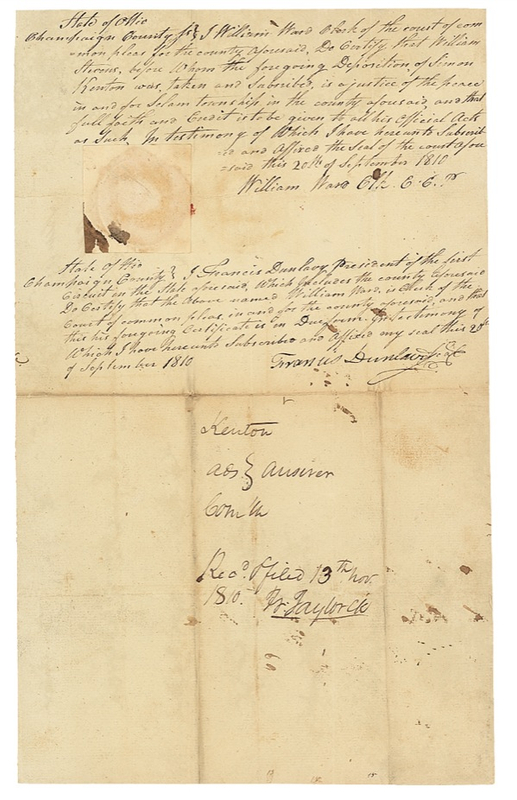 State of Ohio
Champaign County ss I William Ward Clerk of the court of com
mon pleas for the county aforesaid, Do Certify that William
Stevens, before Whom the foregoing Deposition of Simon
Kenton was taken and Subscribed, is a justice of the peace
in and for Salam township in the county aforesaid, and that
full faith and Credit is to be given to all his Official Acts
as Such. In testimony of Which I have hereunto Subscrib
ed and Affixed the Seal of the court afore
said this 20th of September 1810
William Ward Clk. C. C. P
State of Ohio
Champaign County } I Francis Dunlavy President of the first
Circuit in the State aforesaid, Which includes the county aforesaid
Do Certify that the Above named William Ward, is Clerk of the
Court of common pleas, in and for the county aforesaid, and that
this his foregoing Certificate is in Due form. In testimony of
Which I have hereunto Subscribed and Affixed my seal this 20th
of September 1810
Francis Dunlavy Seal
Kenton
ads } Answer
Comth
Recd. & filed 13th Nov.
1810. Taylor Clk